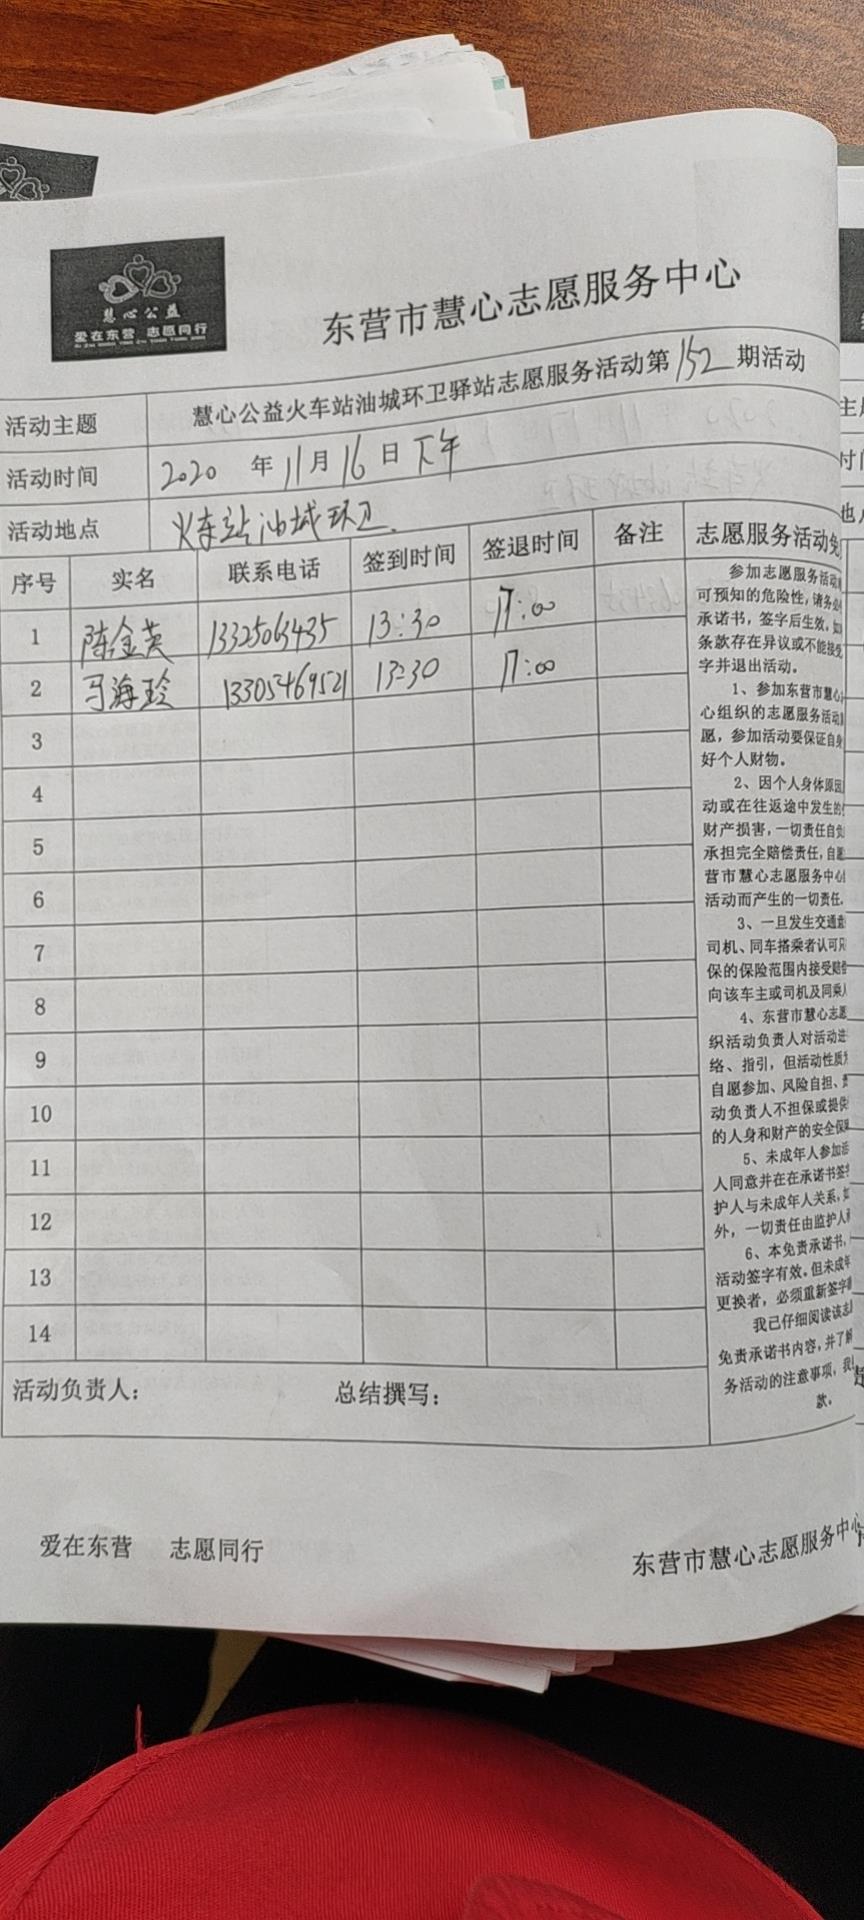 慧心公益
爱在东营 志愿同行
东营市慧心志愿服务中心
活动主题 慧心公益火车站油城环卫驿站志愿服务活动第152期活动
活动时间 2020 年 11 月 16 日 下午
活动地点 火车站油城环卫.
序号 实名 联系电话 签到时间 签退时间 备注
1 陈金英 13325063435 13:30 17:00
2 马海玲 13305469521 13:30 17:00
3
4
5
6
7
8
9
10
11
12
13
14
活动负责人: 总结撰写:
志愿服务活动免
参加志愿服务活动
可预知的危险性,请务必
承诺书,签字后生效,如
条款存在异议或不能接受
字并退出活动。
1、参加东营市慧心
心组织的志愿服务活动
愿,参加活动要保证自身
好个人财物。
2、因个人身体原因
动或在往返途中发生的
财产损害,一切责任自负
承担完全赔偿责任,自愿
营市慧心志愿服务中心
活动而产生的一切责任.
3、一旦发生交通意
司机、同车搭乘者认可只
保的保险范围内接受赔偿
向该车主或司机及同乘人
4、东营市慧心志愿
织活动负责人对活动进
络、指引,但活动性质为
自愿参加、风险自担、责
动负责人不担保或提供
的人身和财产的安全保
5、未成年人参加活
人同意并在在承诺书签字
护人与未成年人关系,如
外,一切责任由监护人承
6、本免责承诺书,
活动签字有效。但未成年
更换者,必须重新签字
我已仔细阅读该志
免责承诺书内容,并了解
务活动的注意事项,我
款。
爱在东营 志愿同行
东营市慧心志愿服务中心